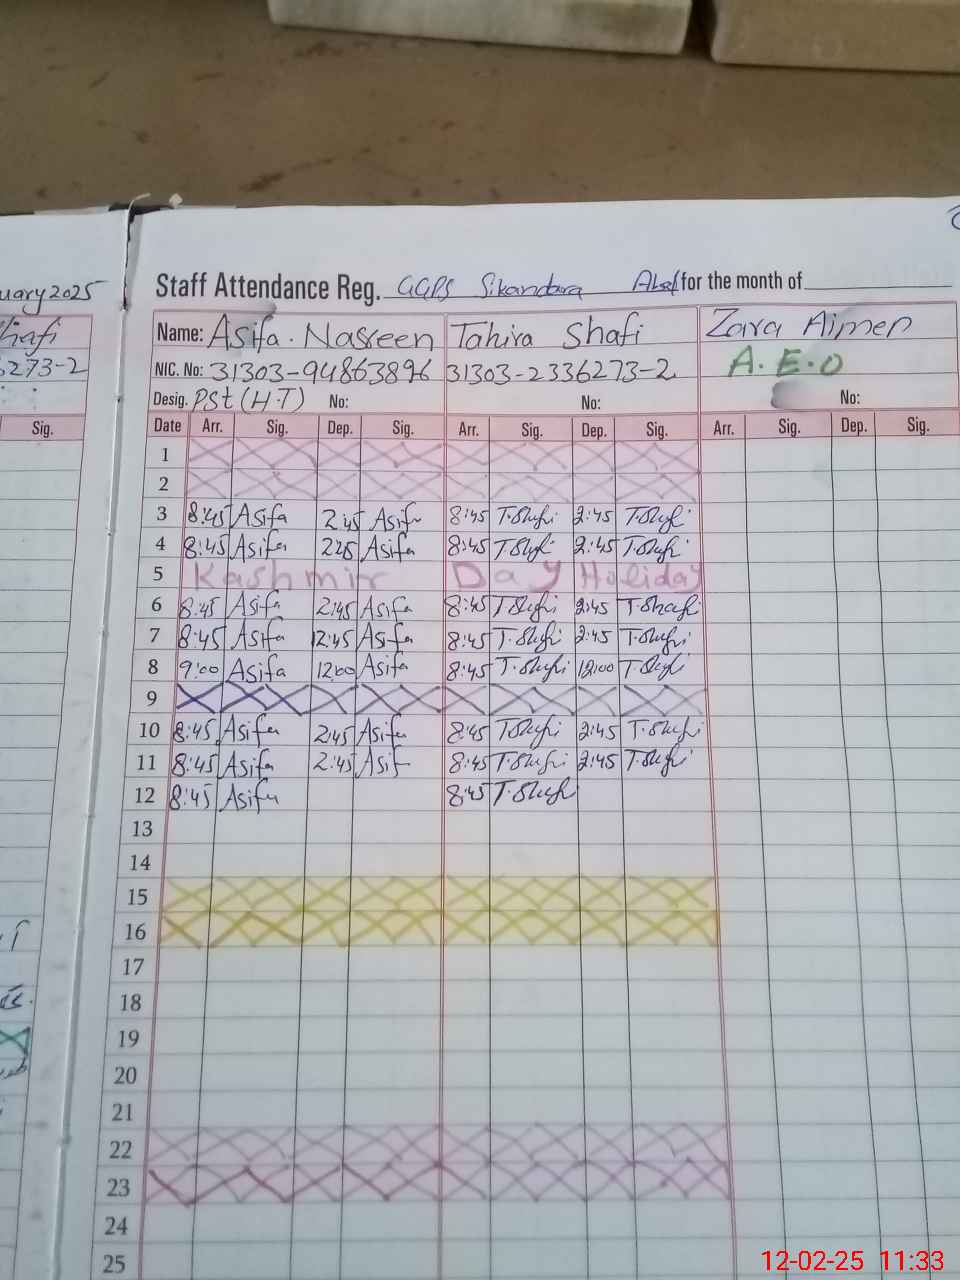 uary 2025
hafi
6273-2
Sig.
Staff Attendance Reg. GGPS Sikandara for the month of
Name: Asifa Nasreen Tahira Shafi Zara Aimen
NIC. No: 31303-94863896 31303-2336273-2 A.E.O
Desig. PSt (H.T) No: No: No:
Date Arr. Sig. Dep. Sig. Arr. Sig. Dep. Sig. Arr. Sig. Dep. Sig.
1
2
3 8:45 Asifa 2:45 Asifa 8:45 T.Shafi 2:45 T.Shafi
4 8:45 Asifa 2:45 Asifa 8:45 T.Shafi 2:45 T.Shafi
5 Kashmir Day Holiday
6 8:45 Asifa 2:45 Asifa 8:45 T.Shafi 2:45 T.Shafi
7 8:45 Asifa 12:45 Asifa 8:45 T.Shafi 2:45 T.Shafi
8 9:00 Asifa 12:00 Asifa 8:45 T.Shafi 12:00 T.Shafi
9
10 8:45 Asifa 2:45 Asifa 8:45 T.Shafi 2:45 T.Shafi
11 8:45 Asifa 2:45 Asif 8:45 T.Shafi 2:45 T.Shafi
12 8:45 Asifa 8:45 T.Shafi
13
14
15
16
17
18
19
20
21
22
23
24
25
12-02-25 11:33